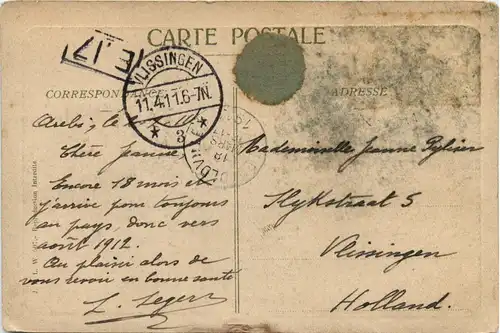 CARTE POSTALE
E.17
VLISSINGEN
11.4.11.6-7N.
3
CORRESPONDANCE
ADRESSE
Arebi, le
Chère Jeanne,
Encore 18 mois et
j'arrive pour toujours
au pays, donc vers
août 1912.
Au plaisir alors de
vous revoir en bonne santé
L.
Mademoiselle Jeanne
5
Vlissingen
Holland.